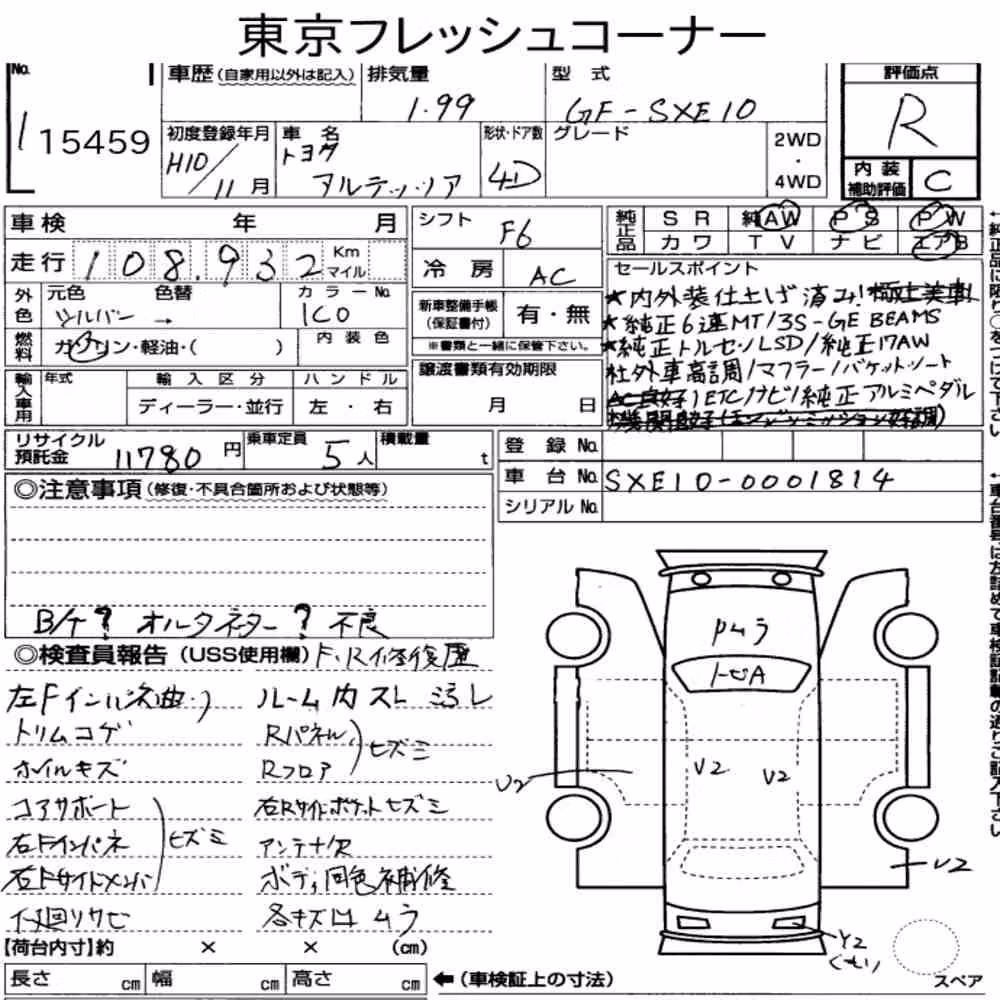 東京フレッシュコーナー
No. 15459
車歴(自家用以外は記入)
排気量 1.99
型式 GF-SXE10
評価点 R
初度登録年月 H10/11月
車名 トヨタ アルテッツァ
形状・ドア数 4D
グレード
2WD・4WD
内装補助評価 C
車検 年 月
シフト F6
純正品 SR 純AW PS PW
カワ TV ナビ エアB
走行 108,932 Km マイル
冷房 AC
セールスポイント
外色 元色 シルバー → 色替
カラーNo. 1C0
新車整備手帳(保証書付) 有・無
※書類と一緒に保管下さい。
★内外装仕上げ済み!極上美車!
★純正6速MT/3S-GE BEAMS
★純正トルセンLSD/純正17AW
社外車高調/マフラー/バケットシート
AC良好/ETC/ナビ/純正アルミペダル
燃料 ガソリン・軽油・( )
内装色
譲渡書類有効期限
月 日
輸入車用 年式 輸入区分 ハンドル
ディーラー・並行 左・右
リサイクル預託金 11780円
乗車定員 5人
積載量 t
登録No.
車台No. SXE10-0001814
シリアルNo.
◎注意事項(修復・不具合箇所および状態等)
B/T? オルタネター? 不良
◎検査員報告(USS使用欄) F.R修復歴
左Fインパネ曲り ルーム内スレ 汚レ
トリムコゲ Rパネル
ホイルキズ Rフロア ヒズミ
コアサポート 右Rサイドポケットヒズミ
右Fインパネ ヒズミ アンテナ欠
右Fサイドメンバ ボディ同色補修
下廻リサビ 各キズ凹 ムラ
Pムラ
トビA
U2
U2
U2
U2
Y2
【荷台内寸】約 × × (cm)
長さ cm 幅 cm 高さ cm
←(車検証上の寸法)
スペア